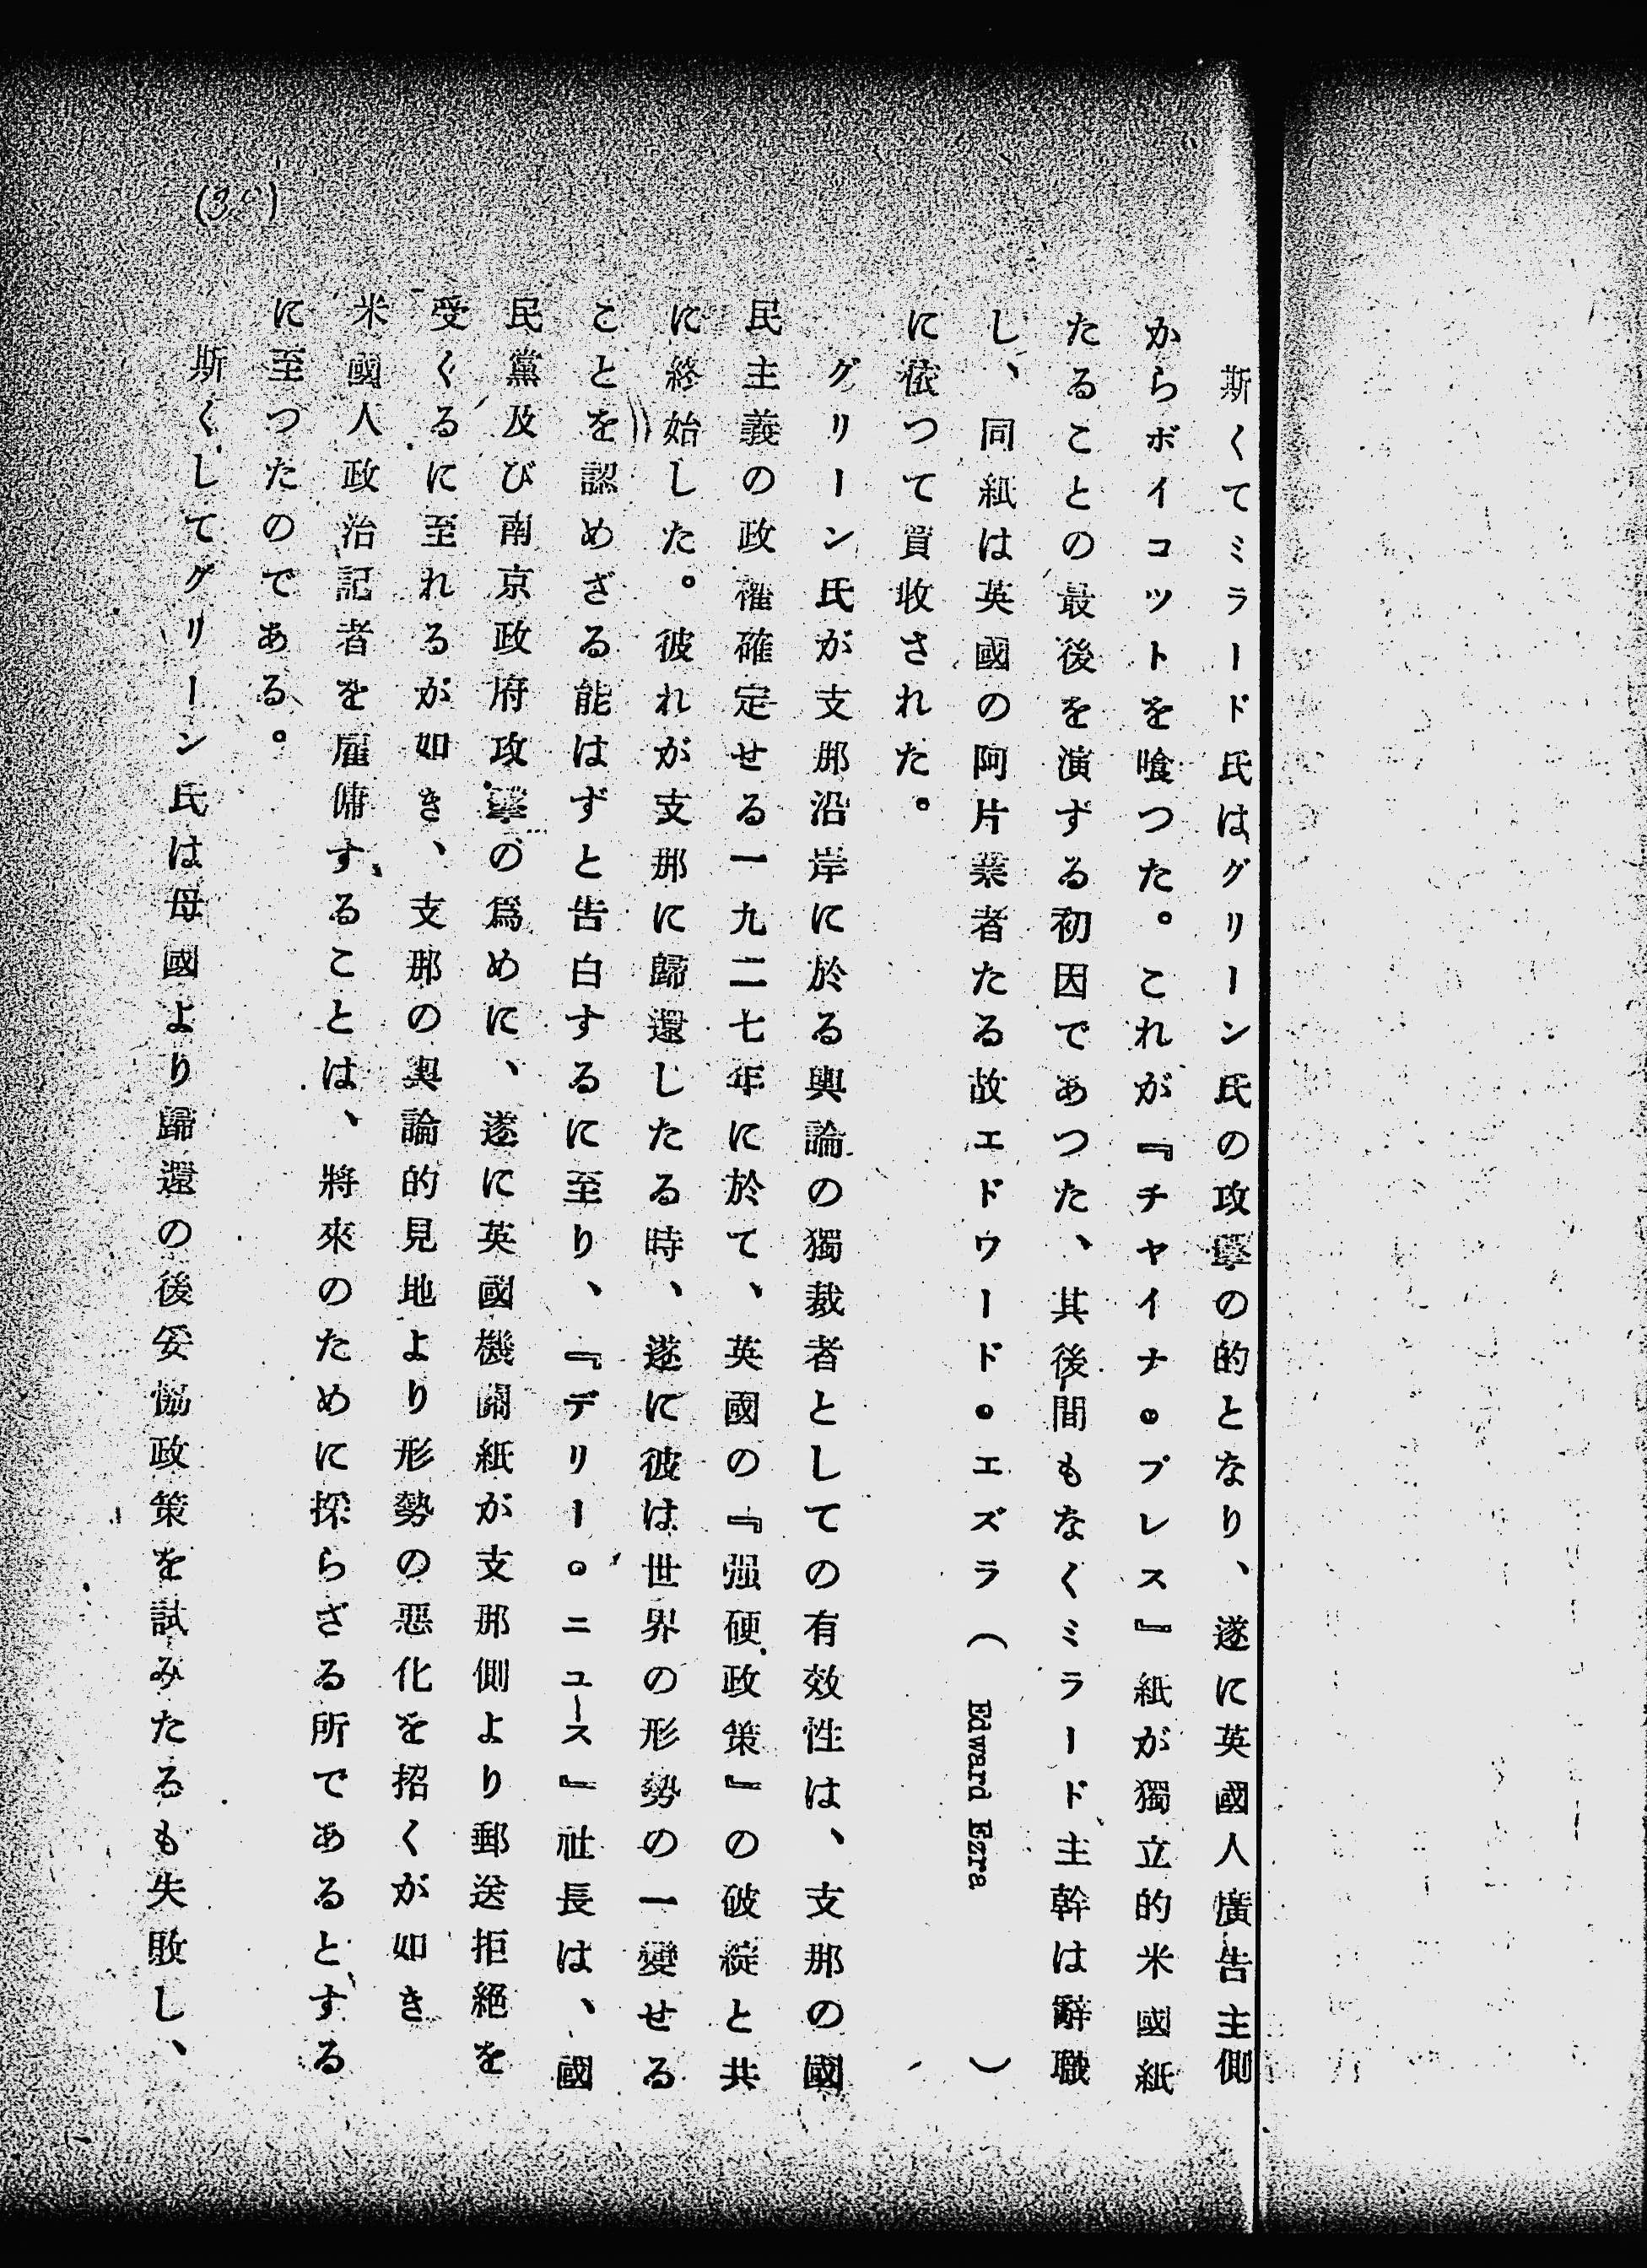 斯くてミラード氏はグリーン氏の攻擊の的となり、遂に英國人廣告主側
からボイコツトを喰つた。これが『チヤイナ・プレス』紙が獨立的米國紙
たることの最後を演ずる初因であつた、其後間もなくミラード主幹は辭職
し、同紙は英國の阿片業者たる故エドワード・エズラ（Edward Ezra）
に依つて買收された。
グリーン氏が支那沿岸に於る輿論の獨裁者としての有效性は、支那の國
民主義の政權確定せる一九二七年に於て、英國の『强硬政策』の破綻と共
に終始した。彼れが支那に歸還したる時、遂に彼は世界の形勢の一變せる
ことを認めざる能はずと告白するに至り、『デリー・ニユース』社長は、國
民黨及び南京政府攻擊の爲めに、遂に英國機關紙が支那側より郵送拒絕を
受くるに至れるが如き、支那の輿論的見地より形勢の惡化を招くが如き
米國人政治記者を雇傭することは、將來のために採らざる所であるとする
に至つたのである。
斯くしてグリーン氏は母國より歸還の後妥協政策を試みたるも失敗し、